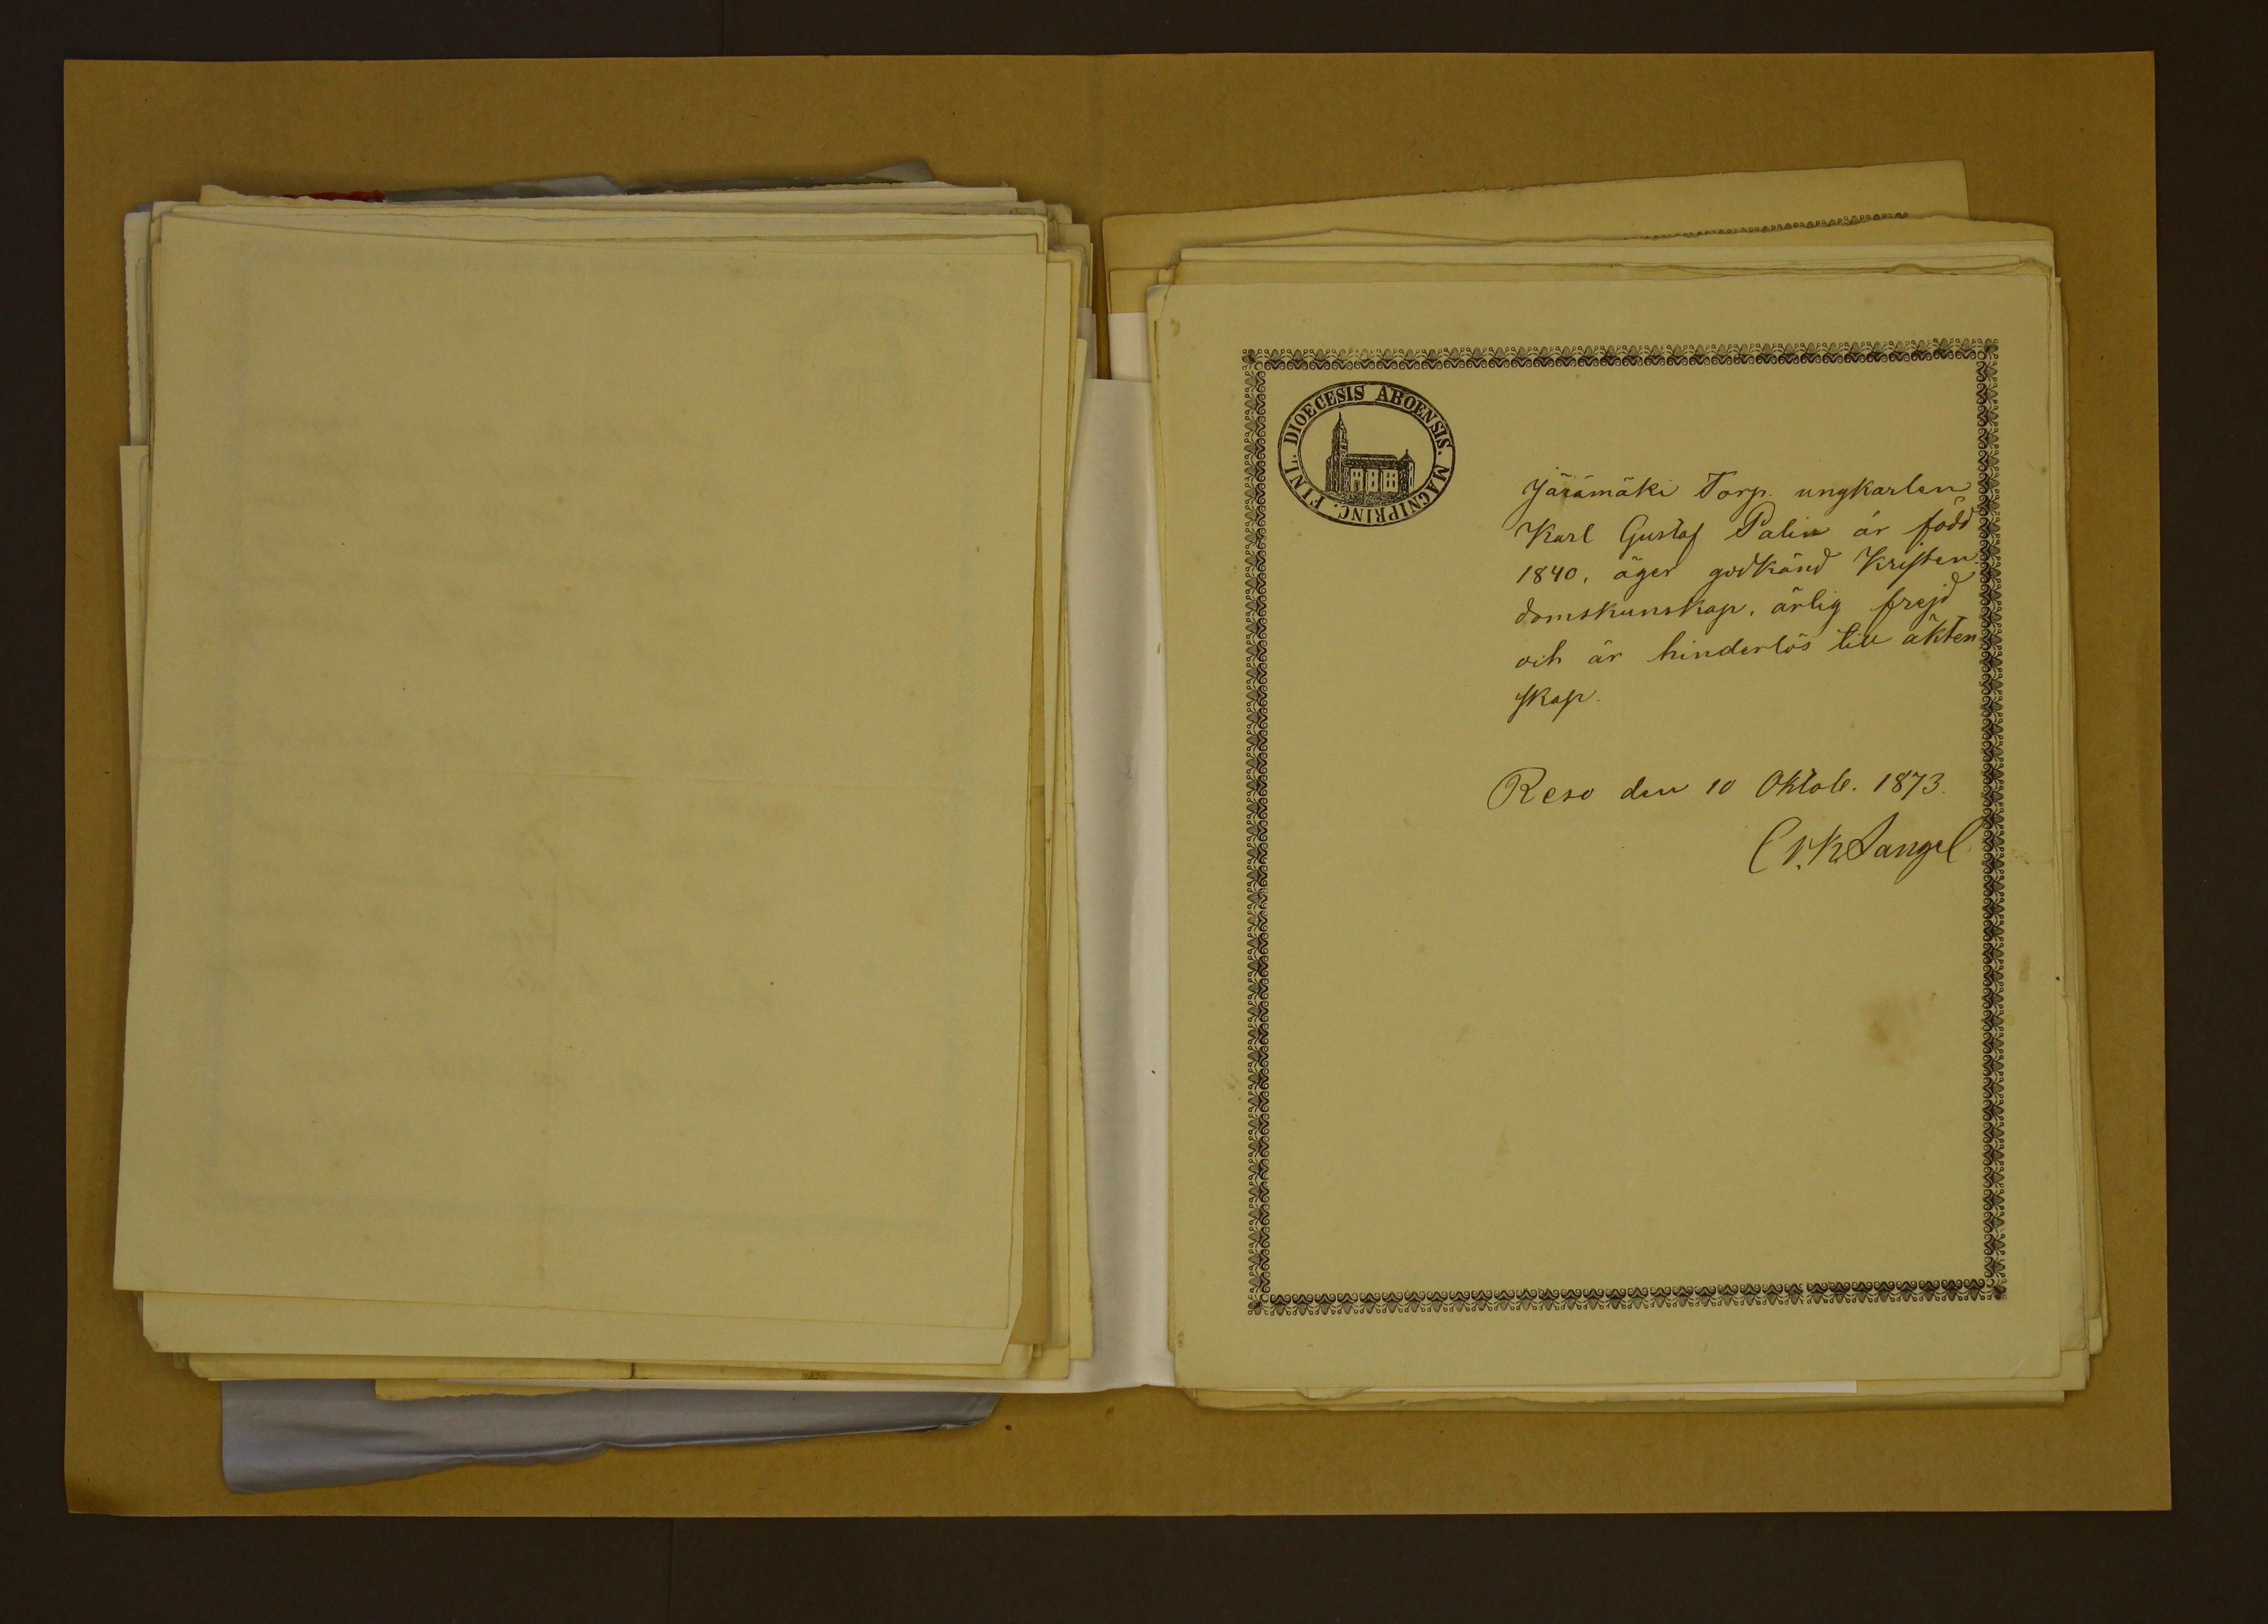 DIOECESIS ABOENSIS. MAGNIPRINC. FINL.
Järämäki Torp. ungkarlen
Karl Gustaf Palin är född
1840, äger godkänd Kristen
domskunskap, ärlig frejd
och är hinderlös till äkten
skap.
Reso den 10 Oktob. 1873.